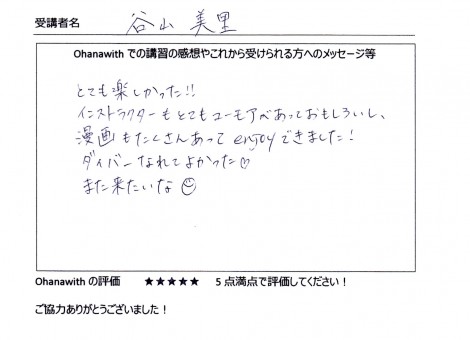 受講者名 谷山 美里
Ohanawith での講習の感想やこれから受けられる方へのメッセージ等
とても楽しかった!!
インストラクターもとてもユーモアべあっておもしろいし、
漫画もたくさんあって enjoy できました!
ダイバーなれてよかった♡
また来たいな☺
Ohanawith の評価 ★★★★★ 5 点満点で評価してください！
ご協力ありがとうございました！